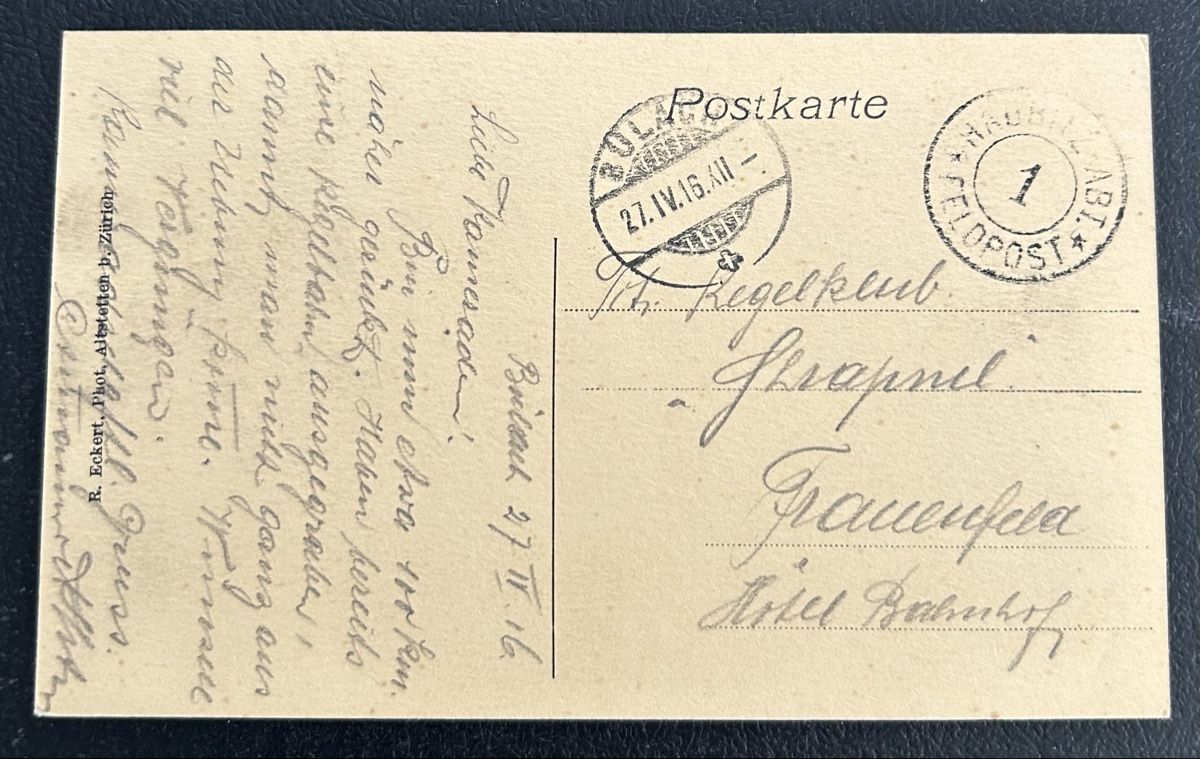 Postkarte
BÜLACH
27.IV.16.XII-
HAUBITZ-ABT.
1
FELDPOST
Kegelklub
Shrapnel.
Frauenfeld
Hôtel Bahnhof
Bülach 27 IV. 16.
Liebe
Bin nun etwa 100 km.
näher gerückt. Haben bereits
eine Kegelbahn ausgegraben,
damit man nicht ganz aus
der Uebung komme. Wünsche
viel Vergnügen.
Gruss.
R. Eckert, Phot. Altstetten b. Zürich